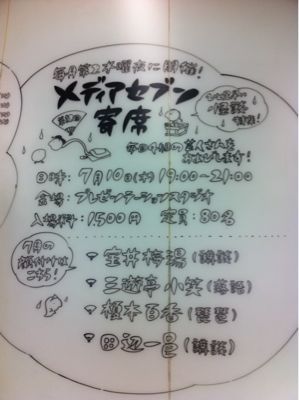 毎月第2水曜夜に開催!
メディアセブン
寄席
怪談
特集!
毎回4組の芸人さんを
お招きします!
日時:7月10日(水)19:00~21:00
会場:プレゼンテーションスタジオ
入場料:1,500円 定員:80名
7月の
顔付けは
こちら!
宝井梅湯(講談)
三遊亭小笑(落語)
榎本百香(琵琶)
田辺一邑(講談)